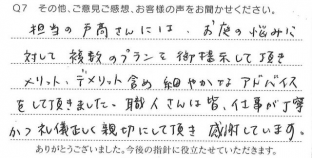 Q7 その他、ご意見ご感想、お客様の声をお聞かせください。
担当の戸高さんには、お庭の悩みに
対して複数のプランを御提示して頂き
メリット、デメリット含め細やかなアドバイス
をして頂きました。職人さんは皆、仕事が丁寧
かつ礼儀正しく親切にして頂き感謝しています。
ありがとうございました。今後の指針に役立たせていただきます。